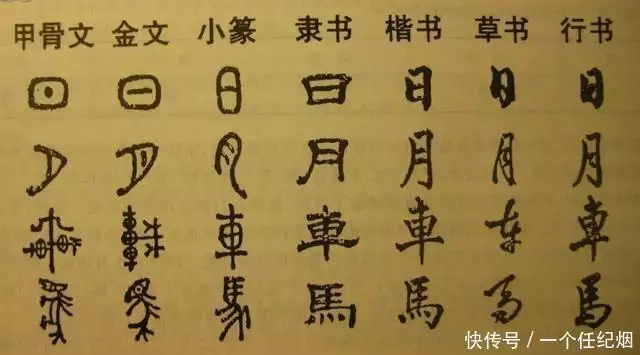 甲骨文 金文 小篆 隶书 楷书 草书 行书
日 日 日 日 日 日 日
月 月 月 月 月 月 月
車 車 車 車 車 車 車
馬 馬 馬 馬 馬 馬 馬
快传号/一个任纪烟